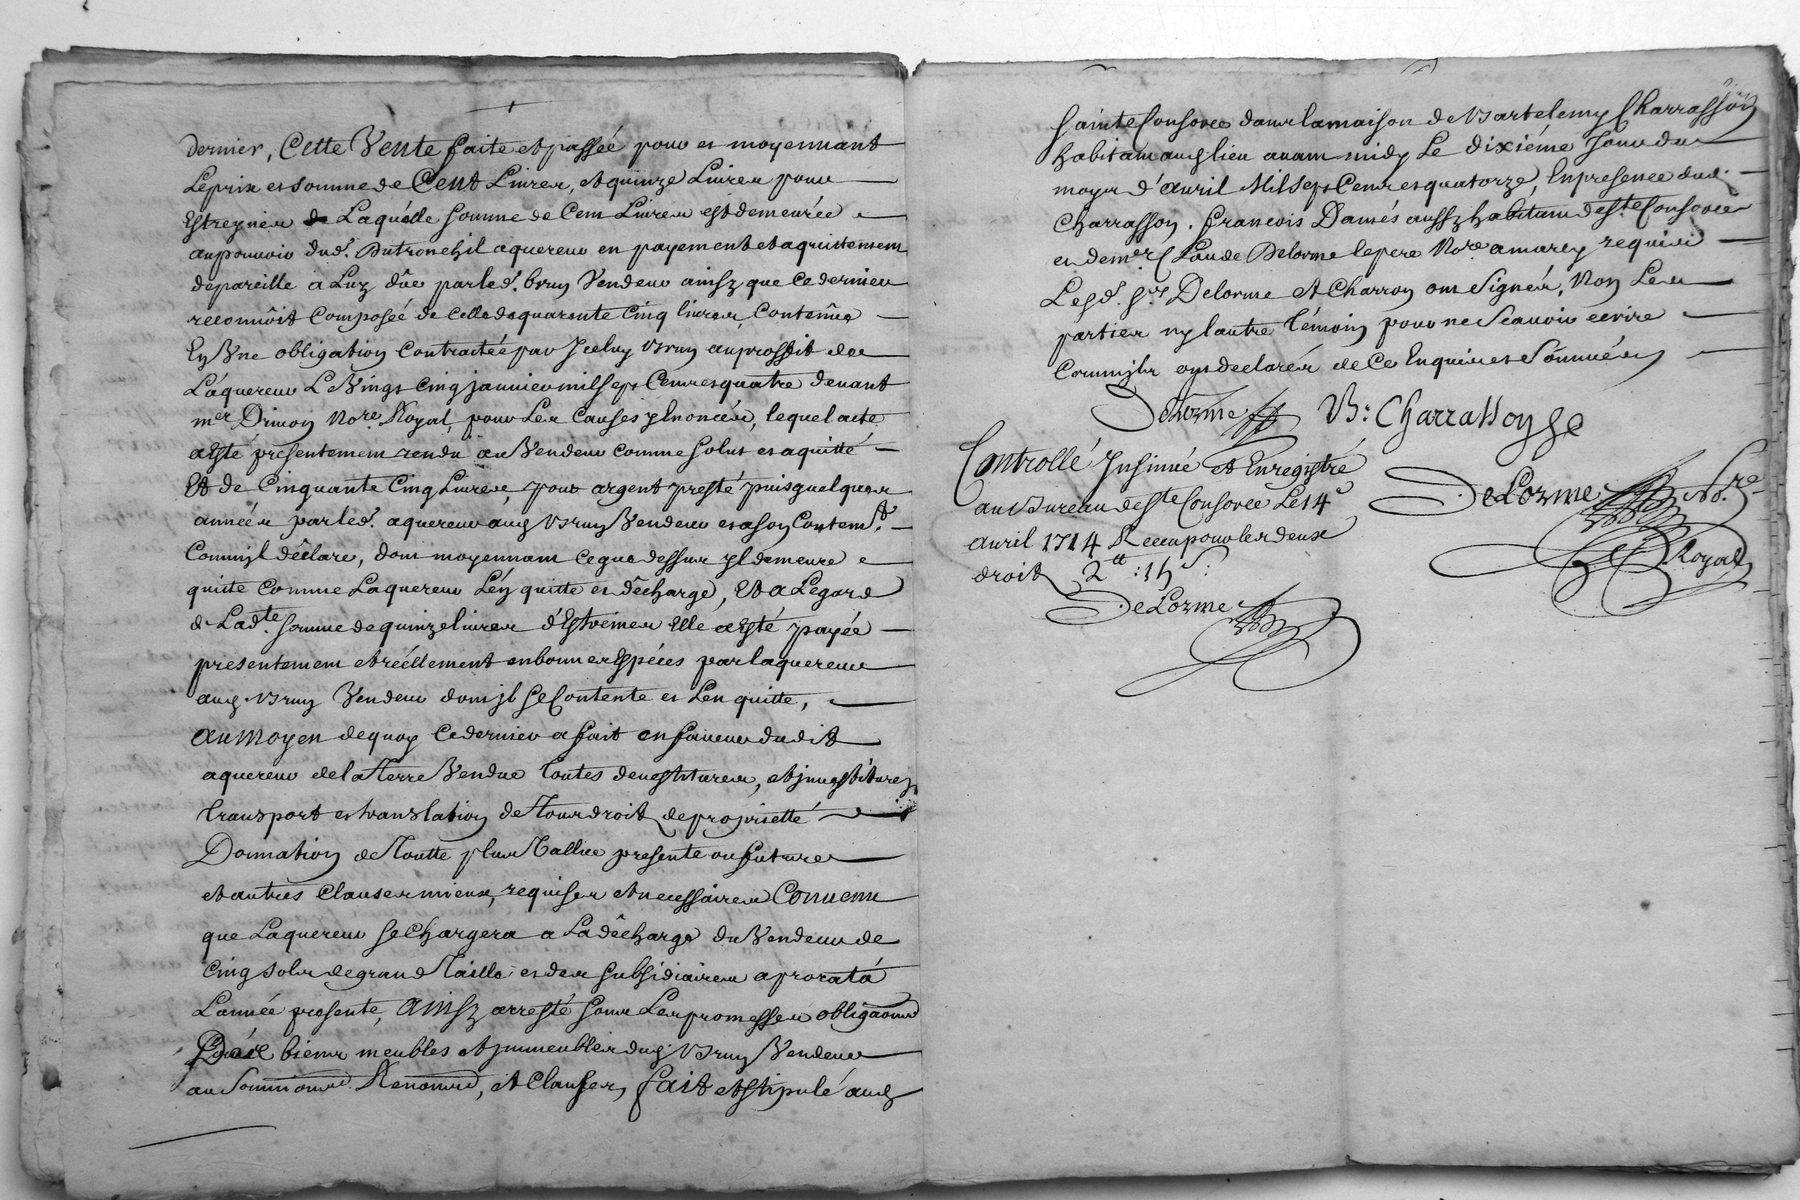 dernier, Cette Vente faite et passée pour et moyennant
Le prix et somme de Cent Livres, et quinze Livres pour
Estreynes de Laquelle somme de Cent Livres est demeurée
au pouvoir dud. Dutronchil aquereur en payement et aquittement
de pareille a Luy dûe par led. brun Vendeur ainsy que ce dernier
reconnôit Composée de celle de quarante Cinq livres, Contenûe
En Vne obligation Contractée par Jceluy brun au proffit de
L'aquereur Le Vingt cinq janvier mil sept Cents quatre devant
me Dimon Nore Royal, pour Les Causes y Enoncées, lequel acte
a Esté présentement rendu au Vendeur comme solut et aquitté
Et de Cinquante Cinq Livres, pour argent presté puis quelques
années par led. aquereur audt brun Vendeur et a son Contemt
Comm jl dêclare, dont moyennant ce que dessus jl demeure
quitte comme L'aquereur L'en quitte et dêcharge, Et a L'egard
de Ladte somme de quinze livres d'Estreines Elle a Esté payée
présentement et réellement en bonnes Espéces par l'aquereur
aud. brun Vendeur dont jl se Contente et L'en quitte,
au moyen de quoy Ce dernier a fait en faveur dudit
aquereur de la Terre Vendue Toutes devestitures, et jnvestitures
Transport et translation de Tous droits de proprietté
Donnation de Toutte plus Vallue presente ou future
et autres Clauses mieux requises et necessaires Convenu
que L'aquereur se Chargera a La dêcharge du Vendeur de
Cinq sols de grand Taille et des subsidiaires a prorata
L'année presente, ainsy arresté sous Les promesses obligaons
biens meubles et jmmeubles dud. brun Vendeur
aux Soumissions Renons, et Clauses, fait et stipulé aud.
sainte Consorce dans la maison de Bartelemy Charrasson
habitant aud. lieu avant midy Le dixiéme Jour du
moys d'avril Mil Sept Cents quatorze, En presence dud.
Charrasson. francois Damés aussy habitant de Ste Consorce
et de me Claude Delorme le pere Nore a marcy requis
Lesd. srs Delorme et Charrasson ont Signés, Non Les
parties ny l'autre témoin pour ne Scavoir ecrire
Comm jls ont declarés de ce Enquis et Sommés
Delorme B: Charrasson
Controllé Jnsinué et Enregistré
au Bureau de Ste Consorce Le 14e
avril 1714 Receu pour les deux
droits 2tt : 15s :
DeLorme
DeLorme Nore
Royal